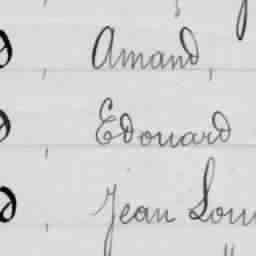 d, Amand,
d, Edouard
d, Jean Lou